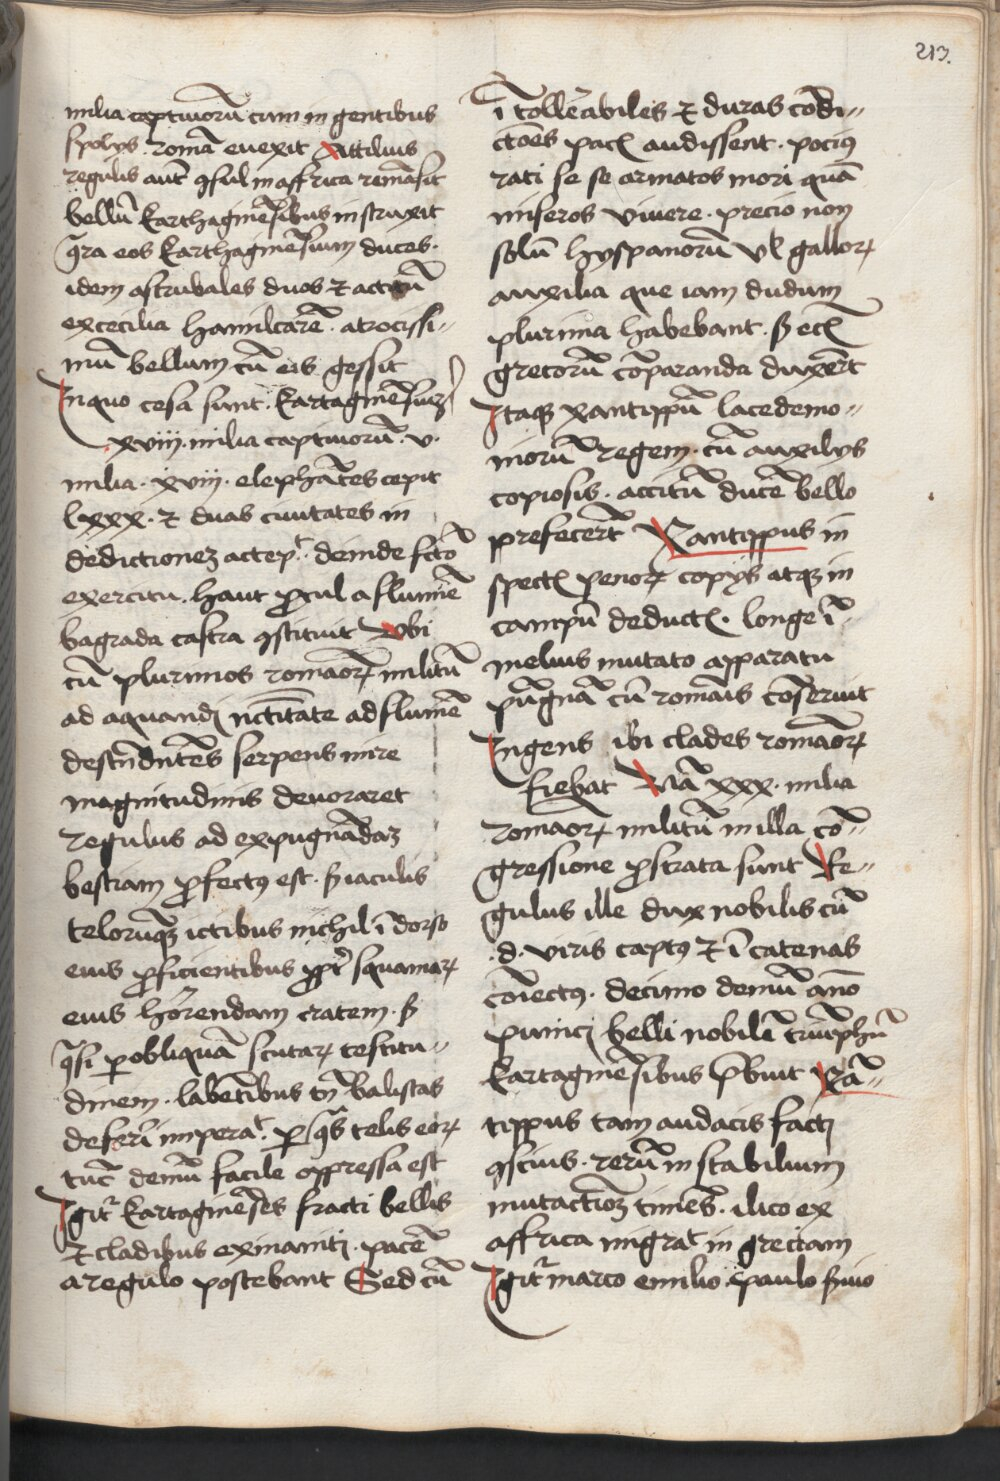 213.
milia captiuorū cum in gentibus
spolijs . romā euexit Attilius
regulus aūt ꝯsul in affrica remāsit
bellū karthaginēsibus instruxit
ꝯtra eos karthaginēsium duces .
idem astrubales duos ⁊ accitū
ex cecilia hamilcarē . atrocissi〃
mū bellum cū eis gessit
Inquo cesa sunt . kartaginēsiuꝫ
xviij . milia captiuorū . v .
milia . xviij . elephātes cepit
lxxx . ⁊ duas ciuitates in
dedictionez accep̄t . deinde fcō
exercitu . haut ꝓcul a fluminē
bagrada castra ꝯstituit Vbi
cū plurimos romaoꝝ militū
ad aquandi nc̄citate ad flumē
descēdētes serpens mire
magnitudinis deuoraret
regulus ad expugnādaꝫ
bestiam ꝓfectꝰ est . ſꝫ iaculis
teloruꝫqꝫ ictibus nichil ī dorso
eius ꝓficientibus ꝓpt̄ squamaꝝ
eius hōrendam cratem . ſꝫ
q̄si ꝑ obliquā scutaꝝ testitu〃
dinem . labētibus tn̄ balistas
deferri imperat . ꝑ q̄s telis eoꝝ
tūc demū facile oppressa est
Igit᷑ kartaginēses fracti bellis
⁊ cladibus exinaniti . pacē
a regulo postebant Sed cū
ī tollerabiles ⁊ duras cōdi〃
ctōes pacꝭ audissent . pociꝰ
rati se se armatos mori quā
miseros viuere . precio non
solū hyspanorū vl̄ galloꝝ
auxilia que iam dudum
plurima habebant . ſꝫ ecꝭ
grecorū cōparanda duxer̄t
Itaqꝫ xantippū lacedemo〃
niorū regem . cū auxilijs
copiosis . accitū ducē bello
prefecer̄t Xantippus in
spectꝭ penoꝝ copijs atqꝫ in
campū deductꝭ . longe ī
melius mutato apparatu
pūgnā cū romāis cōseruit
Ingens ibi clades romāoꝝ
fiebat Nā xxx . milia
romaoꝝ militū in illa cō〃
gressione ꝓstrata sunt Re〃
gulus ille dux nobilis cū
. d . viris captꝰ ⁊ ī catenas
cōiectꝰ . decimo demū āno
punici belli nobilē triūphū
kartaginēsibus p̄buit Xā〃
tippus tam audacis facti
ꝯscius . rerū instabilium
mutactiōꝫ timēs . ilico ex
affrica migrat in greciam
Igit᷑ marco emilio . paulo ſuio